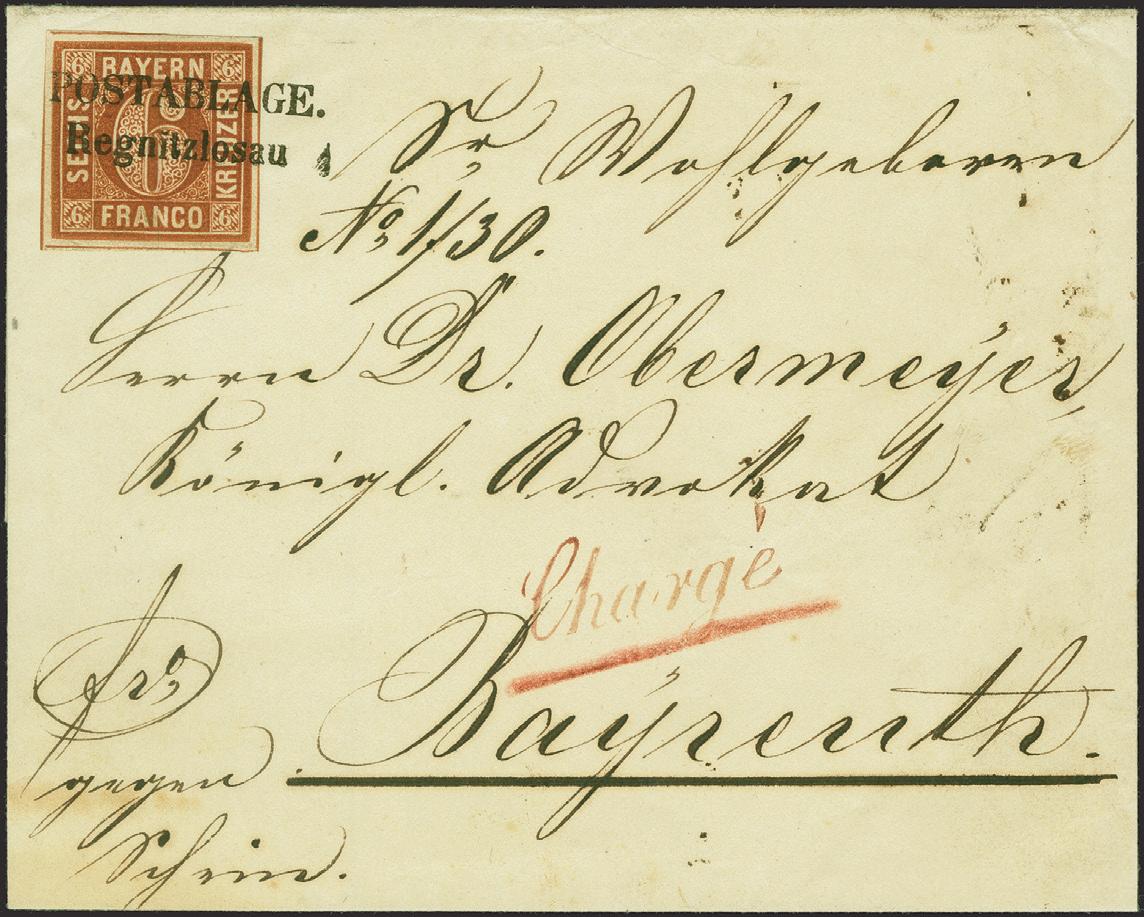 BAYERN
SECHS
KREUZER
FRANCO
6 6 6 6
6
POSTABLAGE.
Regnitzlosau
Sr Wohlgeboren
No. 1/30.
Herrn Dr. Obermeyer,
Königl. Advokat
Chargé
fro.
Bayreuth.
gegen
Schein.